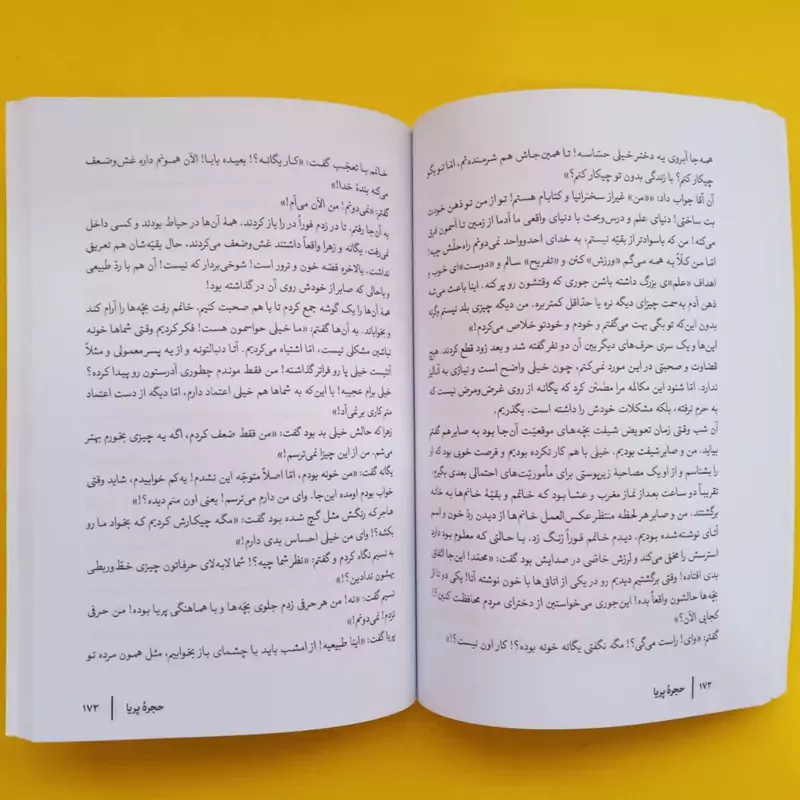 همه‌جا آبروی یه دختر خیلی حسّاسه! تا همین‌جاش هم شرمنده‌تم. امّا تو بگو
چیکار کنم؟ با زندگی بدون تو چیکار کنم؟»
آن آقا جواب داد: ««من» غیراز سخنرانیا و کتابام هستم! تو از من تو ذهن خودت
بت ساختی! دنیای علم و درس‌وبحث با دنیای واقعی ما آدما از زمین تا آسمون فرق
می‌کنه! من که باسوادتر از بقیّه نیستم، به خدای احدوواحد نمی‌دونم راه‌حلّش چیه!
امّا من کلّاً به همه می‌گم «ورزش» کنن و «تفریح» سالم و «دوست»‌ای خوب و
اهداف «علم»ی بزرگ داشته باشن جوری که وقتشون رو پر کنه. اینا باعث می‌شه
ذهن آدم به‌سمت چیزای دیگه نره یا حدّاقل کمتر بره. من دیگه چیزی بلد نیستم وگرنه
بدون این‌که تو بگی بهت می‌گفتم و خودم و خودتو خلاص می‌کردم!»
این‌ها و یک سری حرف‌های دیگر بین آن دو نفر گفته شد و بعد زود قطع کردند. هیچ
قضاوت و صحبتی در این مورد نمی‌کنم، چون خیلی واضح است و نیازی به آنالیز
ندارد. امّا شنود این مکالمه مرا مطمئن کرد که یگانه از روی غرض‌ومرض نیست که
به حرم نرفته، بلکه مشکلات خودش را داشته است. بگذریم.
آن شب وقتی زمان تعویض شیفت بچّه‌های موقعیّت آن‌جا بود به صابر هم گفتم
بیاید. من و صابر شیفت بودیم. خیلی با هم کار نکرده بودیم و فرصت خوبی بود که او
را بشناسم و از او یک مصاحبهٔ زیرپوستی برای مأموریّت‌های احتمالی بعدی بگیرم.
تقریباً دو ساعت بعد از نماز مغرب و عشا بود که خانم و بقیّهٔ خانم‌ها به خانه
برگشتند. من و صابر هر لحظه منتظر عکس‌العمل خانم‌ها از دیدن ردّ خون و اسم
آنای نوشته‌شده بودیم. دیدم خانم فوراً زنگ زد. با حالتی که معلوم بود دارد
استرسش را مخفی می‌کند و لرزش خاصّی در صدایش بود گفت: «محمّد! این‌جا اتّفاق
بدی افتاده! وقتی برگشتیم دیدیم رو در یکی از اتاق‌ها با خون نوشته آنا! یکی دو تا از
بچّه‌ها حالشون واقعاً بده! این‌جوری می‌خواستین از دخترای مردم محافظت کنین؟!
کجایی الآن؟»
گفتم: «وای! راست می‌گی؟! مگه نگفتی یگانه خونه بوده؟! کار اون نیست؟!»
۱۷۲ | حجرهٔ پریا
خانم با تعجّب گفت: «کار یگانه؟! بعیده بابا! الآن هم‌ونم داره غش‌وضعف
می‌کنه بندهٔ خدا!»
گفتم: «نمی‌دونم! من الآن می‌آم!»
به آن‌جا رفتم. تا در زدم فوراً در را باز کردند. همهٔ آن‌ها در حیاط بودند و کسی داخل
نمی‌رفت. یگانه و زهرا واقعاً داشتند غش‌وضعف می‌کردند. حال بقیّه‌شان هم تعریفی
نداشت. بالاخره قضه خون و ترور است! شوخی‌بردار که نیست! آن هم با ردّ طبیعی
و باحالی که صابر از خودش روی آن در گذاشته بود!
همهٔ آن‌ها را یک گوشه جمع کردم تا با هم صحبت کنیم. خانم رفت بچّه‌ها را آرام کند
و بخواباند. به آن‌ها گفتم: «ما خیلی حواسمون هست! فکر کردیم وقتی شماها خونه
نباشین مشکلی نیست، امّا اشتباه می‌کردیم. آنا دنبالتونه و از یه پسر معمولی و مثلاً
آتئیست خیلی پا رو فراتر گذاشته! من فقط موندم چطوری آدرستون رو پیدا کرده؟
خیلی برام عجیبه! با این‌که به شماها هم خیلی اعتماد دارم، امّا دیگه از دست اعتماد
منم کاری برنمی‌آد!»
زهرا که حالش خیلی بد بود گفت: «من فقط ضعف کردم، اگه یه چیزی بخورم بهتر
می‌شم. من از این چیزا نمی‌ترسم!»
یگانه گفت: «من خونه بودم، امّا اصلاً متوجّه این نشدم! یه‌کم خوابیدم، شاید وقتی
خواب بودم اومده این‌جا. وای من دارم می‌ترسم! یعنی اون منم دیده؟!»
هاجر که رنگش مثل گچ شده بود گفت: «مگه چیکارش کردیم که بخواد ما رو
بکشه؟! وای من خیلی احساس بدی دارم!»
به نسیم نگاه کردم و گفتم: «نظر شما چیه؟! شما لابه‌لای حرفاتون چیزی خط‌وربطی
بهشون ندادین؟!»
نسیم گفت: «نه! من هر حرفی زدم جلوی بچّه‌ها و با هماهنگی پریا بوده! من حرفی
نزدم! نمی‌دونم!»
پریا گفت: «اینا طبیعیه! از امشب باید با چشمای باز بخوابیم، مثل همون مرده تو
حجرهٔ پریا | ۱۷۳